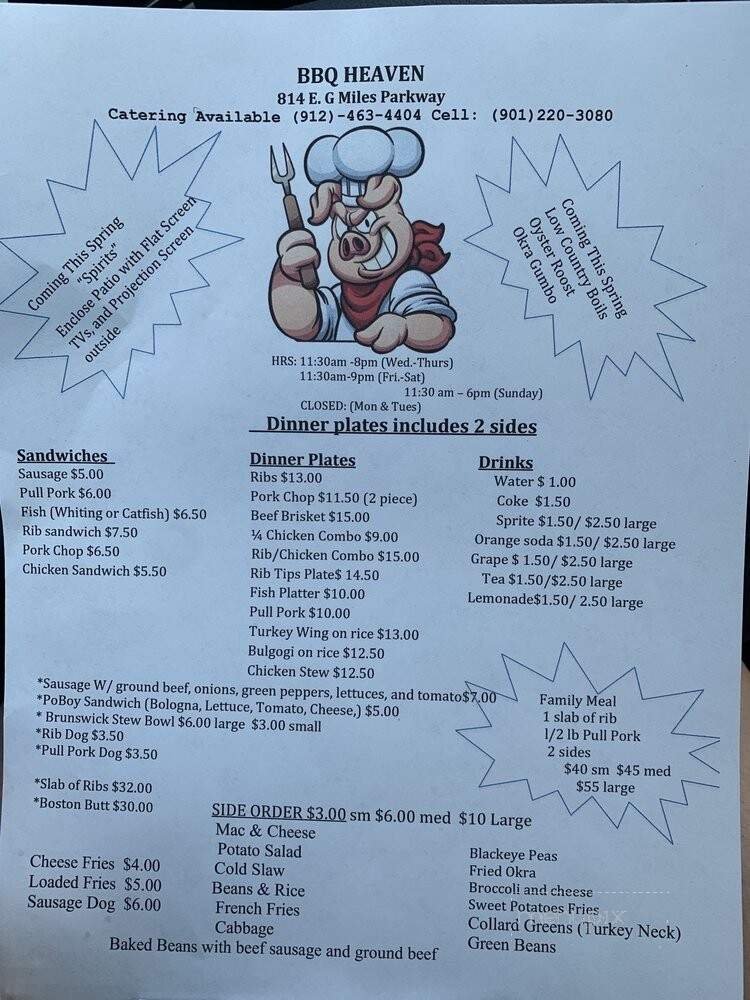 BBQ HEAVEN
814 E. G Miles Parkway
Catering Available (912)-463-4404 Cell: (901)220-3080
Coming This Spring
"Spirits"
Enclose Patio with Flat Screen
TVs, and Projection Screen
outside
Coming This Spring
Low Country Boils
Oyster Roost
Okra Gumbo
HRS: 11:30am -8pm (Wed.-Thurs)
11:30am-9pm (Fri.-Sat)
11:30 am – 6pm (Sunday)
CLOSED: (Mon & Tues)
Dinner plates includes 2 sides
Sandwiches
Sausage $5.00
Pull Pork $6.00
Fish (Whiting or Catfish) $6.50
Rib sandwich $7.50
Pork Chop $6.50
Chicken Sandwich $5.50
Dinner Plates
Ribs $13.00
Pork Chop $11.50 (2 piece)
Beef Brisket $15.00
¼ Chicken Combo $9.00
Rib/Chicken Combo $15.00
Rib Tips Plate$ 14.50
Fish Platter $10.00
Pull Pork $10.00
Turkey Wing on rice $13.00
Bulgogi on rice $12.50
Chicken Stew $12.50
Drinks
Water $ 1.00
Coke $1.50
Sprite $1.50/ $2.50 large
Orange soda $1.50/ $2.50 large
Grape $ 1.50/ $2.50 large
Tea $1.50/$2.50 large
Lemonade$1.50/ 2.50 large
*Sausage W/ ground beef, onions, green peppers, lettuces, and tomato$7.00
*PoBoy Sandwich (Bologna, Lettuce, Tomato, Cheese,) $5.00
* Brunswick Stew Bowl $6.00 large $3.00 small
*Rib Dog $3.50
*Pull Pork Dog $3.50
*Slab of Ribs $32.00
*Boston Butt $30.00
Family Meal
1 slab of rib
1/2 lb Pull Pork
2 sides
$40 sm $45 med
$55 large
SIDE ORDER $3.00 sm $6.00 med $10 Large
Mac & Cheese
Potato Salad
Cold Slaw
Beans & Rice
French Fries
Cabbage
Baked Beans with beef sausage and ground beef
Cheese Fries $4.00
Loaded Fries $5.00
Sausage Dog $6.00
Blackeye Peas
Fried Okra
Broccoli and cheese
Sweet Potatoes Fries
Collard Greens (Turkey Neck)
Green Beans